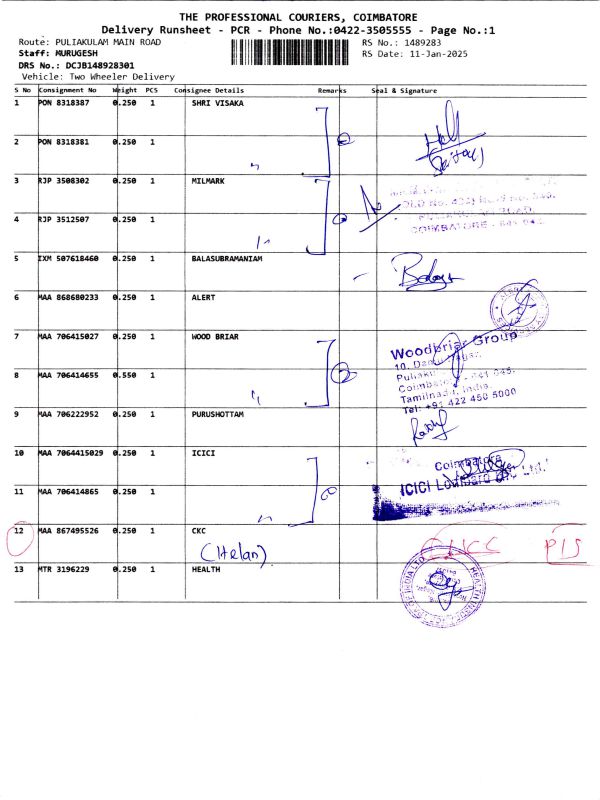 THE PROFESSIONAL COURIERS, COIMBATORE
Delivery Runsheet - PCR - Phone No.:0422-3505555 - Page No.:1
Route: PULIAKULAM MAIN ROAD RS No.: 1489283
Staff: MURUGESH RS Date: 11-Jan-2025
DRS No.: DCJB148928301
Vehicle: Two Wheeler Delivery
S No Consignment No Weight PCS Consignee Details Remarks Seal & Signature
1 PON 8318387 0.250 1 SHRI VISAKA
2 PON 8318381 0.250 1
3 RJP 3508302 0.250 1 MILMARK
OLD No.
4 RJP 3512507 0.250 1
COIMBATORE - 641 045
5 IXM 507618460 0.250 1 BALASUBRAMANIAM
6 MAA 868680233 0.250 1 ALERT
7 MAA 706415027 0.250 1 WOOD BRIAR
Woodbriar Group
8 MAA 706414655 0.550 1
Coimbatore - 641 045.
Tamilnadu, India.
Tel: +91 422 450 5000
9 MAA 706222952 0.250 1 PURUSHOTTAM
10 MAA 7064415029 0.250 1 ICICI
Coimbatore
11 MAA 706414865 0.250 1
ICICI Lombard GIC Ltd.
12 MAA 867495526 0.250 1 CKC
13 MTR 3196229 0.250 1 HEALTH